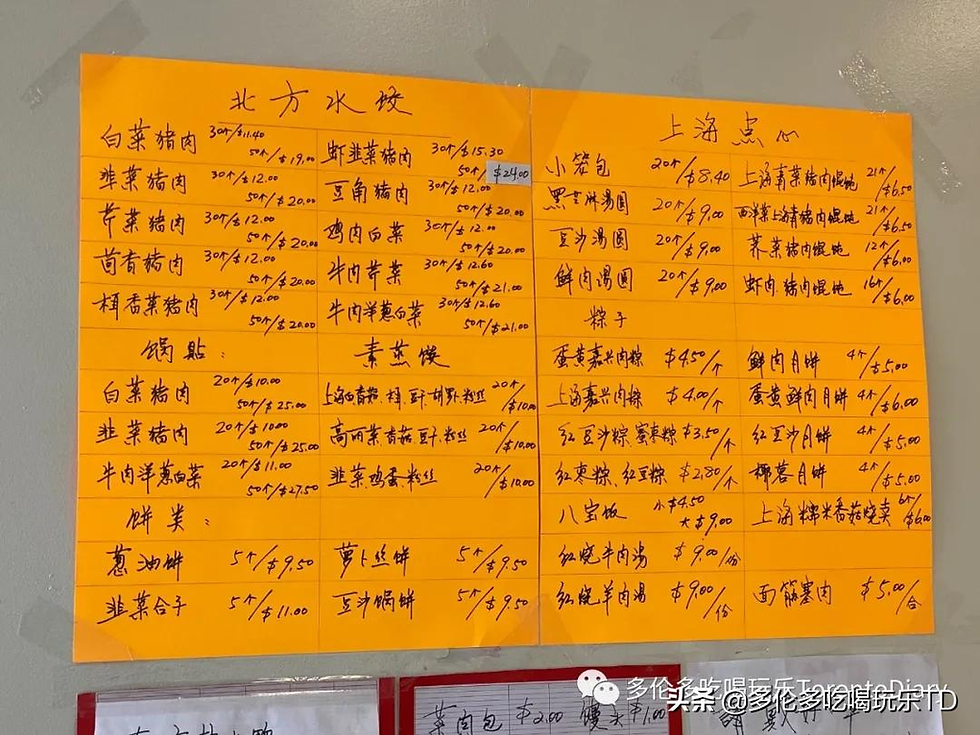 北方水饺
白菜猪肉 30个/$11.40
50个/$19.00
韭菜猪肉 30个/$12.00
50个/$20.00
芹菜猪肉 30个/$12.00
50个/$20.00
茴香猪肉 30个/$12.00
50个/$20.00
香菜猪肉 30个/$12.00
50个/$20.00
虾韭菜猪肉 30个/$15.30
50个/ $24.00
豆角猪肉 30个/$12.00
50个/$20.00
鸡肉白菜 30个/$12.00
50个/$20.00
牛肉芹菜 30个/$12.60
50个/$21.00
牛肉洋葱白菜 30个/$12.60
50个/$21.00
锅贴:
白菜猪肉 20个/$10.00
50个/$25.00
韭菜猪肉 20个/$10.00
50个/$25.00
牛肉洋葱白菜 20个/$11.00
50个/$27.50
素蒸饺
20个/$10.00
高丽菜香菇豆干.粉丝 20个/$10.00
韭菜.鸡蛋粉丝 20个/$10.00
饼类:
葱油饼 5个/$9.50
萝卜丝饼 5个/$9.50
韭菜合子 5个/$11.00
豆沙锅饼 5个/$9.50
上海点心
小笼包 20个/$8.40
黑芝麻汤圆 20个/$9.00
豆沙汤圆 20个/$9.00
鲜肉汤圆 20个/$9.00
上海青菜猪肉馄饨 21个/$6.50
西洋菜上海青猪肉馄饨 21个/$6.50
荠菜猪肉馄饨 12个/$6.00
虾肉.猪肉馄饨 16个/$6.00
粽子
蛋黄嘉兴肉粽 $4.50/个
上海嘉兴肉粽 $4.00/个
红豆沙粽.蜜枣粽 $3.50/个
红枣粽.红豆粽 $2.80/个
八宝饭 小$4.50
大$9.00
红烧牛肉汤 $9.00/份
红烧羊肉汤 $9.00/份
鲜肉月饼 4个/$5.00
蛋黄鲜肉月饼 4个/$6.00
红豆沙月饼 4个/$5.00
椰蓉月饼 4个/$5.00
上海糯米香菇烧卖 6个/$6.00
面筋塞肉 $5.00/合
菜肉包 $2.00 馒头 $1.00
多伦多吃喝玩乐TorontoDiary
头条 @多伦多吃喝玩乐TD